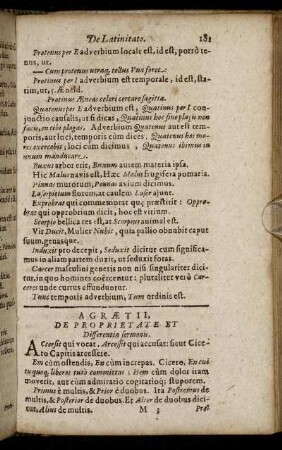 De Latinitate. 181
Protenus per E adverbium locale est, id est, porrò te-
nus, ut,
— Cum protenus utraq; tellus Una foret.:
Protinus per I adverbium est temporale, id est, sta-
tim, ut, 5. Æneid.
Protinus Æneas celeri certare sagitta.
Quatenus per E adverbium est, Quatinus per I con-
junctio causalis, ut si dicas, Quatinus hoc
facio, tibi plagas. Adverbium Quatenus aut est tem-
poris, aut loci, temporis cùm dices, Quatenus ho-
exercebit; loci cùm dicimus, Quatenus ibimus in
manducare.
Buxus arbor erit, Buxum autem materia ipsa.
Hic Malus navis est, Hæc Malus frugifera pomaria.
Pinnas murorum, Pennas avium dicimus.
Laserpitium florem, at caulem Laser ajunt.
Exprobrat qui commemorat quæ præstitit: Oppro-
brat qui opprobrium dicit, hoc est vitium.
Scorpio bellica res est, at Scorpius animal est.
Vir Ducit, Mulier Nubit, quia pallio obnubit caput
suum, genasque.
Induxit pro decepit, Seduxit dicitur cum significa-
mus in aliam partem duxit, ut seduxit foras.
Carcer masculini generis non nisi singulariter dici-
tur, in quo homines coërcentur: pluraliter verò Car-
ceres unde currus effunduntur.
Tunc temporis adverbium, Tum ordinis est.
AGRÆTII,
DE PROPRIETATE ET
Differentia sermonis.
Accersit qui vocat, Arcessit qui accusat: sicut Cice-
ro Capitis arcessere.
Em cùm ostendis, En cùm increpas. Cicero, En cui
tu quoq; liberos tuos committas: Hem cùm dolor iram
moverit, aut cum admiratio cogitatioq; stuporem.
Primus è multis, & Prior è duobus. Ita Postremus de
multis, & Posterior de duobus. Et Alter de duobus dici-
tur, Alius de multis. M 3 Pro-